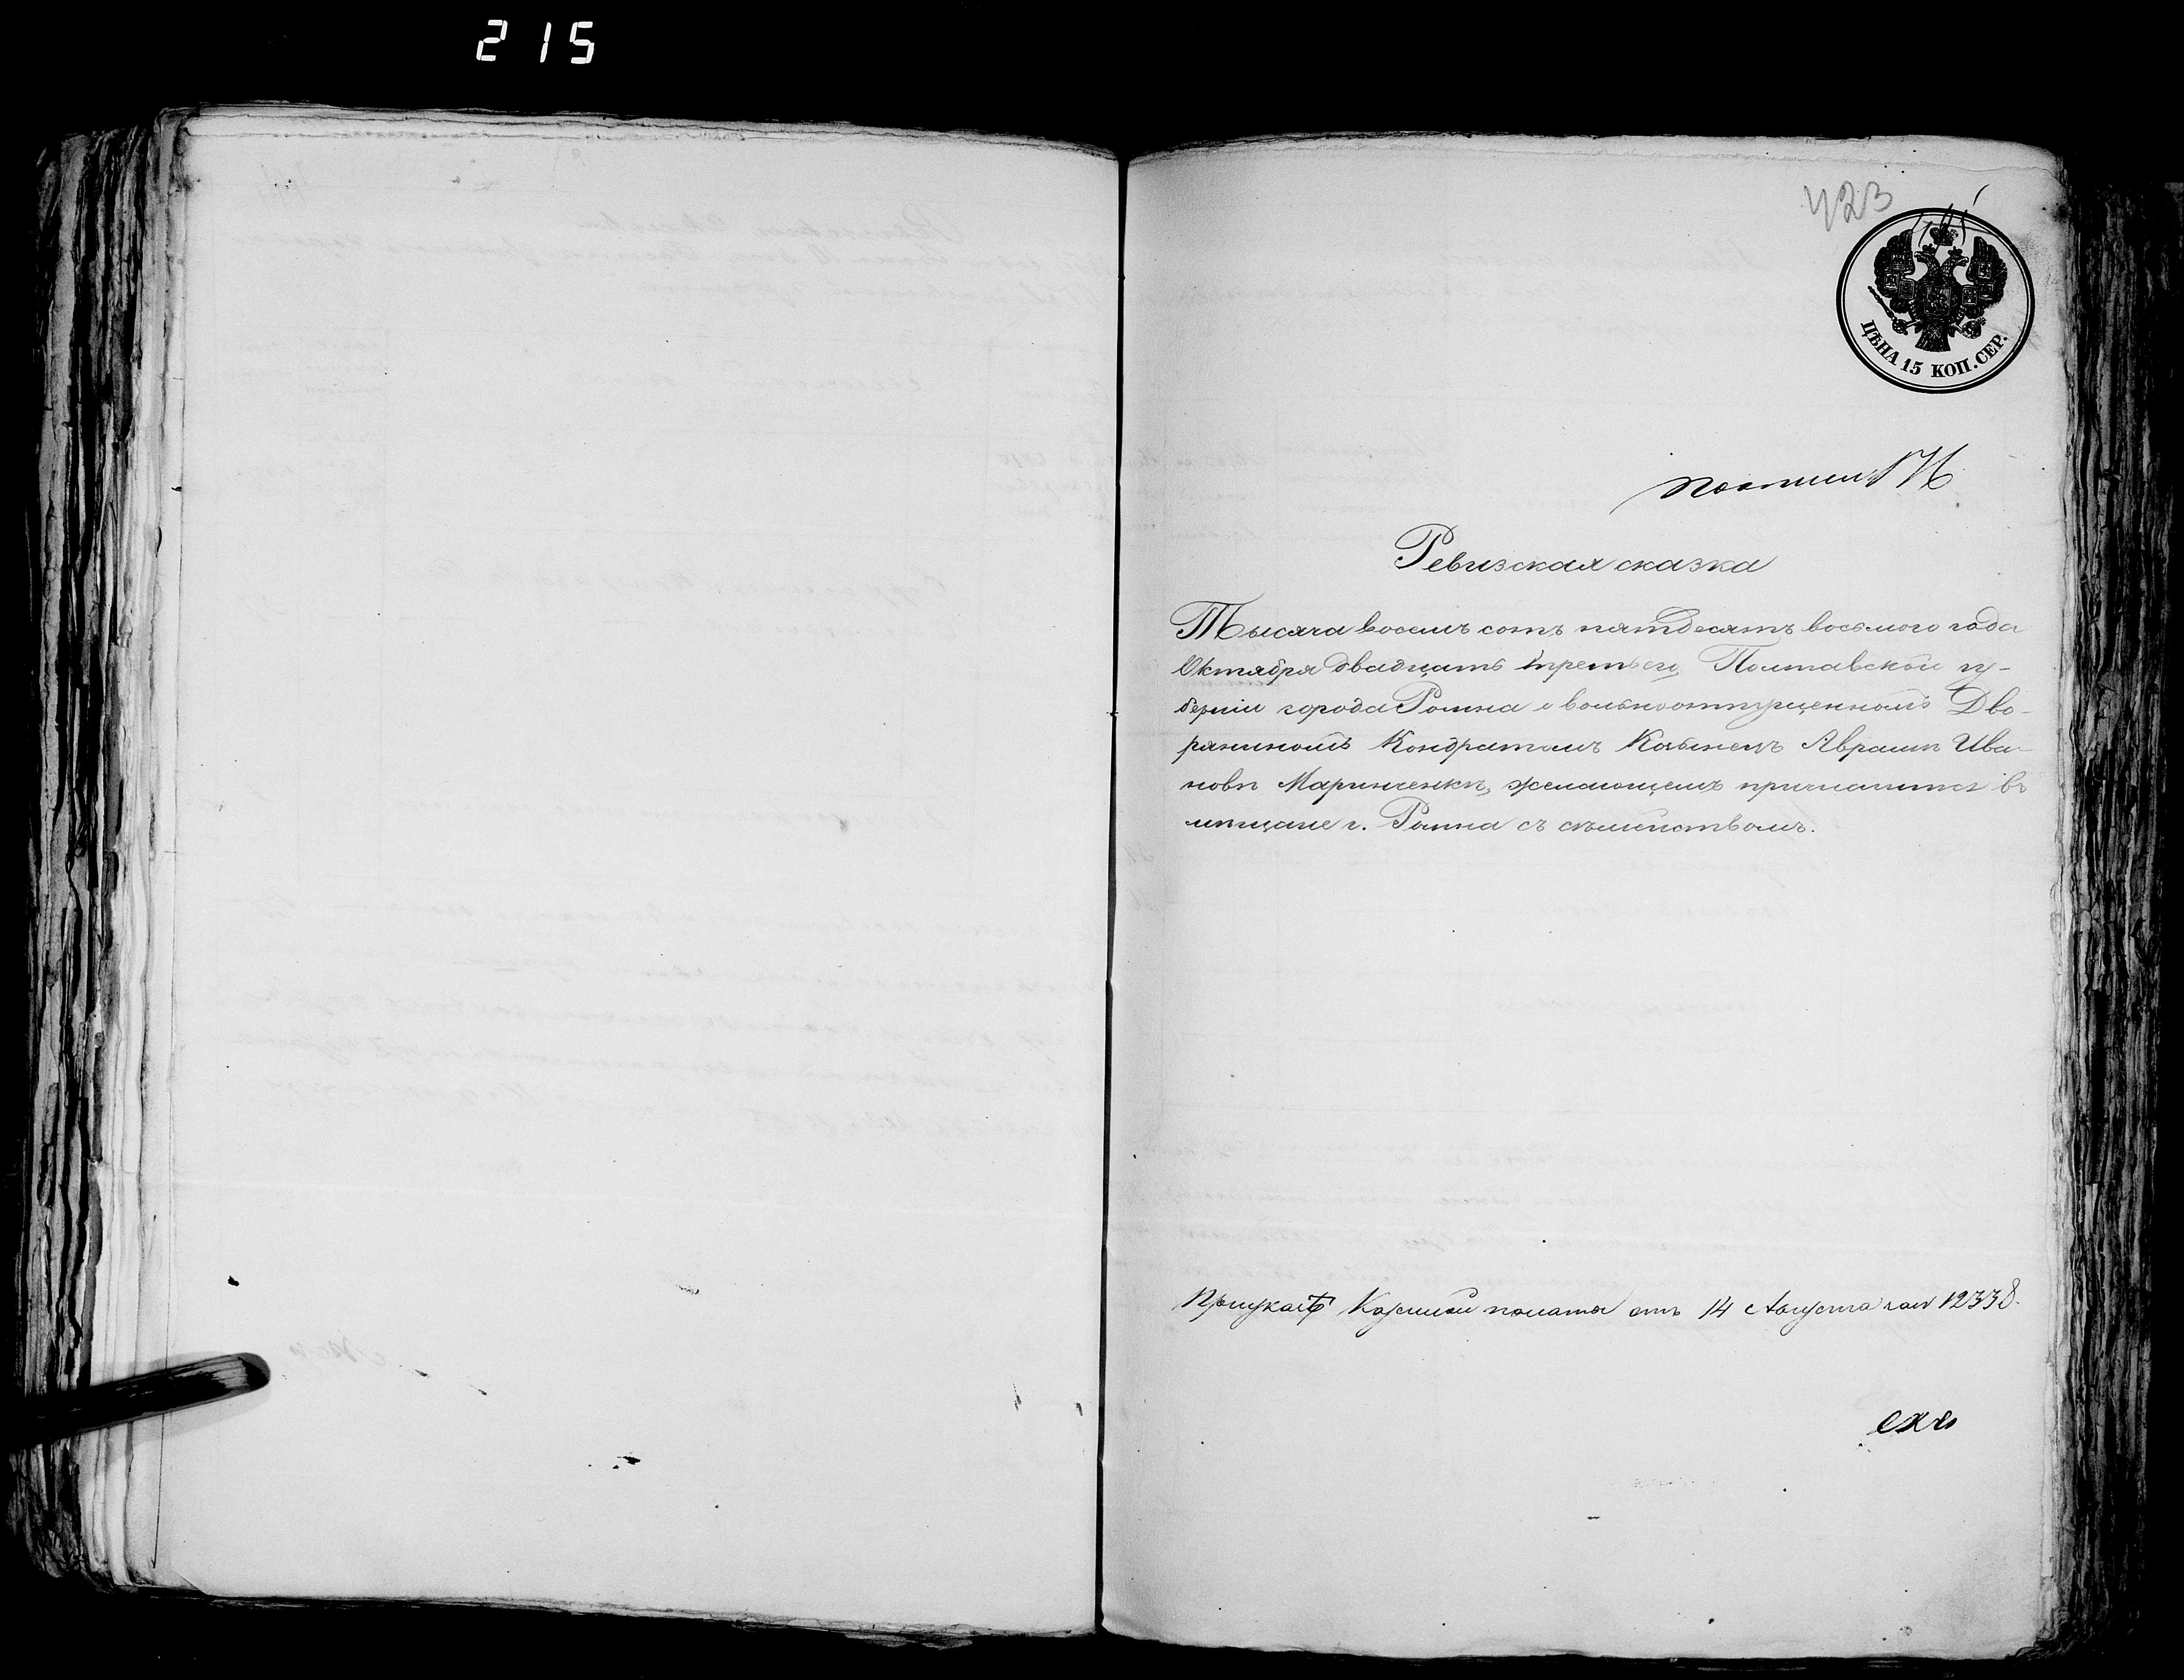 215
423
ЦѢНА 15 КОП. СЕР.
Ревизская сказка
Тысяча восемъ сотъ пятдесятъ восьмого года
Октября двадцать третьего Полтавской гу-
берніи города Ромна о вольноотпущенномъ Дво-
ряниномъ Кондратомъ Авраамѣ Ива-
новѣ Маринченкѣ, желающемъ причислится въ
мѣщане г. Ромна съ сѣмействомъ.
При указѣ Казенной палаты отъ 14 Августа за № 12338.